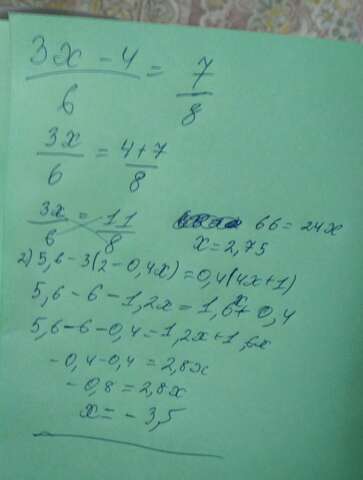 3x - 4 / 6 = 7 / 8
3x / 6 = 4+7 / 8
3x / 6 = 11 / 8 66 = 24x
x = 2,75
2) 5,6-3(2-0,4x)=0,4(4x+1)
5,6-6-1,2x=1,6x+0,4
5,6-6-0,4=1,2x+1,6x
-0,4-0,4=2,8x
-0,8=2,8x
x=-3,5